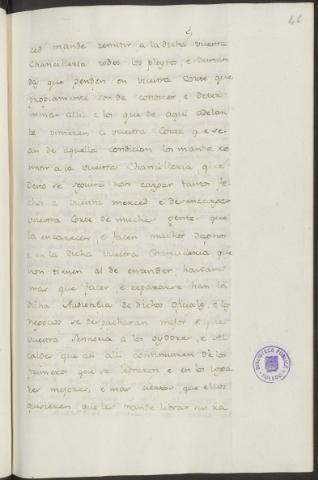 46
ced mande remitir a la dicha vuestra
Chancilleria todos los pleytos e deman
das que penden en vuestra Corte que
propiamente son de conocer e deter
minar alli: e los que de aqui adelan
te vinieren a vuestra Corte que se
an de aquella condicion los mande re
mitir a la vuestra Chancilleria que
desto se seguira non cargar tanto fe
chos a vuestra merced e desencargar
vuestra Corte de mucha gente que
la encarecen e facen muchos dapnos
e en la dicha vuestra Chancilleria que
non tienen al de entender, farsamo
mas que facer e repararse han la
dicha Audiencia de dichos oficiales e los
negocios se despacharan mejor e que
vuestra Sennoria a los oydores, e Al
caldes que asi alli continuaren de los
primeros que se libraren e en los loga
res mejores, e mas ciertos que ellos
quisieren que les mande librar sus ra
BIBLIOTECA PUBLICA
TOLEDO